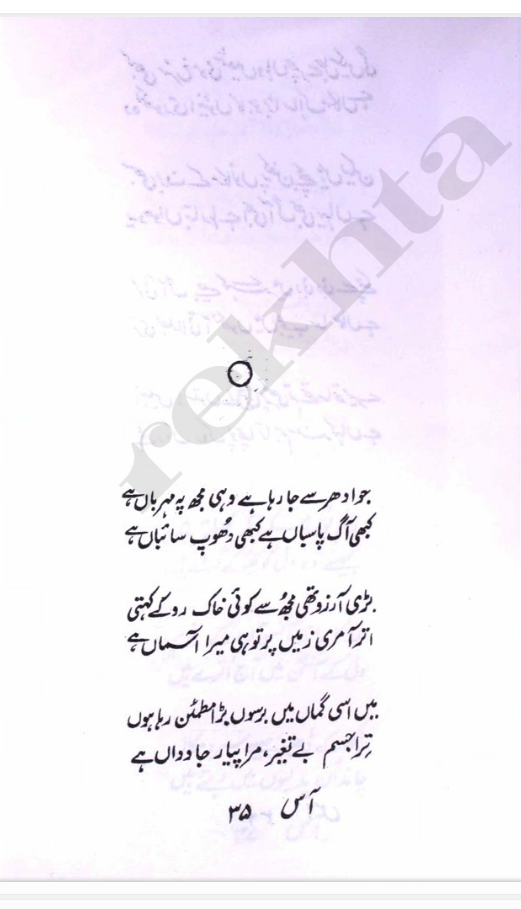 rekhta
جو ادھر سے جا رہا ہے وہی مجھ پہ مہرباں ہے
کبھی آگ پاسباں ہے کبھی دھُوپ سائباں ہے
بڑی آرزو تھی مجھُ سے کوئی خاک رو کے کہتی
اتر آ مری زمیں پر تو ہی میرا آسماں ہے
میں اسی گماں میں برسوں بڑا مطمئن رہا ہوں
تِرا جسم بے تغیر، مرا پیار جاوداں ہے
آس ۳۵